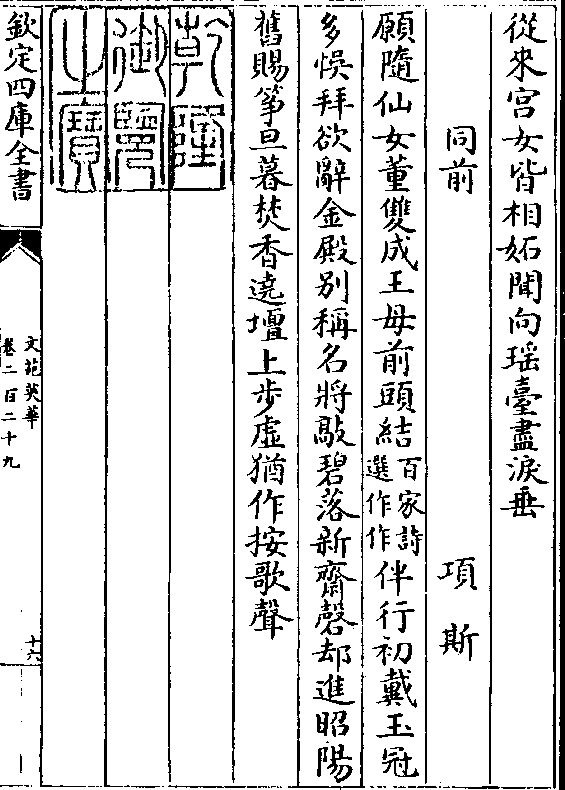 從來宫女皆相妬聞向瑶臺盡淚垂
同前　項斯
願隨仙女董雙成王母前頭結百家詩選作作作伴行初戴玉冠
多悮拜欲辭金殿别稱名將敲碧落新齋磬却進昭陽
舊賜筝旦暮焚香遶壇上步虚猶作按歌聲
乾隆御覽之寶
欽定四庫全書
文苑英華
卷二百二十九
十六